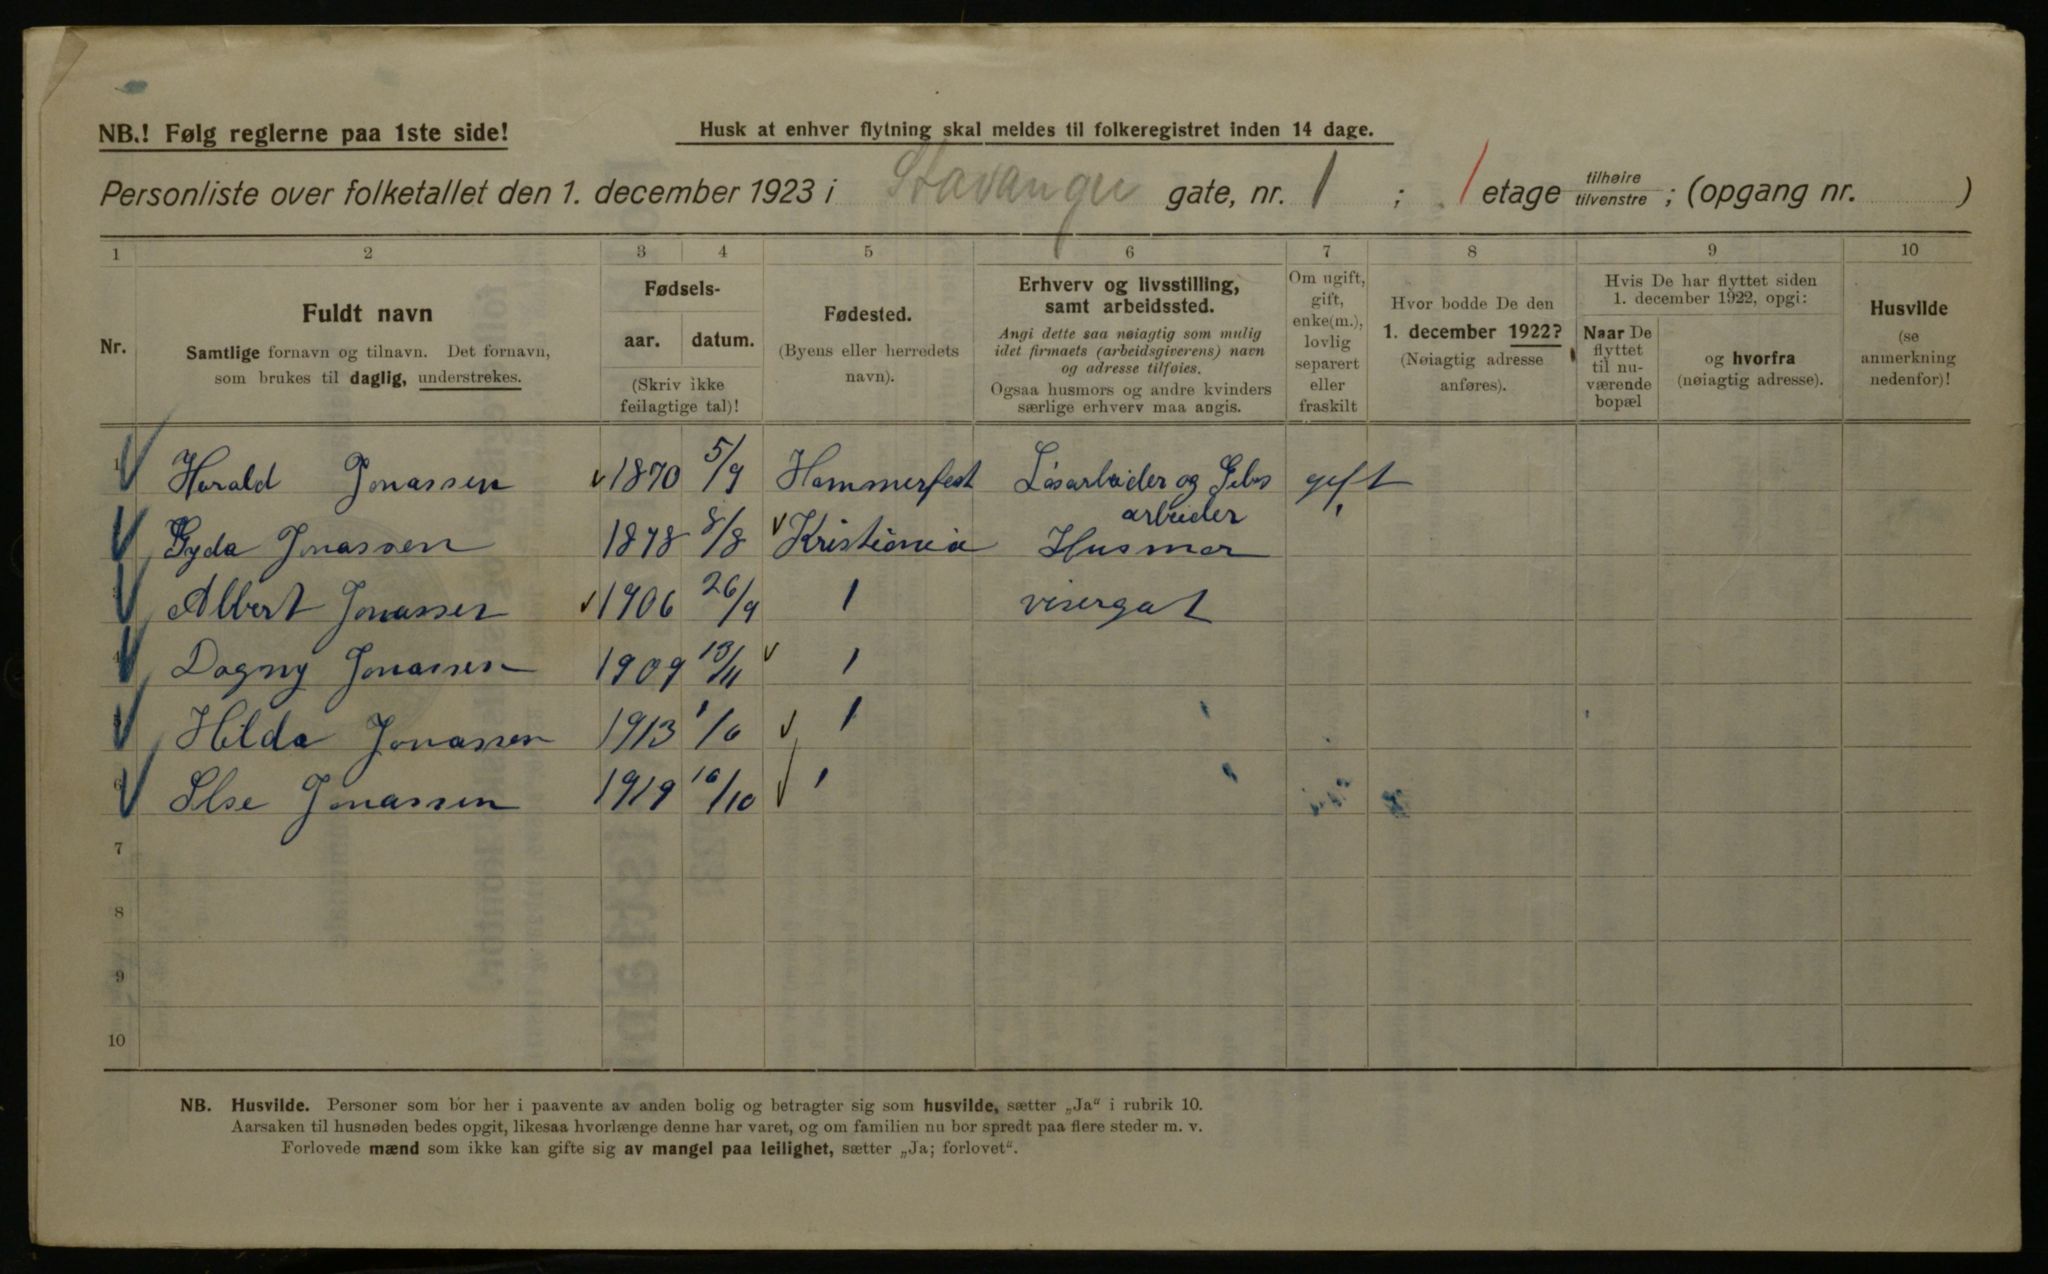 NB.! Følg reglerne paa 1ste side!
Husk at enhver flytning skal meldes til folkeregistret inden 14 dage.
Personliste over folketallet den 1. december 1923 i Stavanger gate, nr. 1 ; 1 etage tilhøire tilvenstre ; (opgang nr. )
1 2 3 4 5 6 7 8 9 10
Nr.
Fuldt navn
Samtlige fornavn og tilnavn. Det fornavn,
som brukes til daglig, understrekes.
Fødsels-
aar. datum.
(Skriv ikke
feilagtige tal)!
Fødested.
(Byens eller herredets
navn).
Erhverv og livsstilling,
samt arbeidssted.
Angi dette saa nøiagtig som mulig
idet firmaets (arbeidsgiverens) navn
og adresse tilføies.
Ogsaa husmors og andre kvinders
særlige erhverv maa angis.
Om ugift,
gift,
enke(m.),
lovlig
separert
eller
fraskilt
Hvor bodde De den
1. december 1922?
(Nøiagtig adresse
anføres).
Hvis De har flyttet siden
1. december 1922, opgi:
Naar De
flyttet
til nu-
værende
bopæl
og hvorfra
(nøiagtig adresse).
Husvilde
(se
anmerkning
nedenfor)!
1 Harald Jonassen 1870 5/9 Hammerfest Løsarbeider og Gibs gift
arbeider
Gyda Jonassen 1878 8/8 Kristiania Husmor
Albert Jonassen 1906 26/9 1 visergut
4 Dagny Jonassen 1909 13/11 1
Hilda Jonassen 1913 1/6 1
6 Else Jonassen 1919 16/10 1
7
8
9
10
NB. Husvilde. Personer som bor her i paavente av anden bolig og betragter sig som husvilde, sætter „Ja“ i rubrik 10.
Aarsaken til husnøden bedes opgit, likesaa hvorlænge denne har varet, og om familien nu bor spredt paa flere steder m. v.
Forlovede mænd som ikke kan gifte sig av mangel paa leilighet, sætter „Ja; forlovet“.